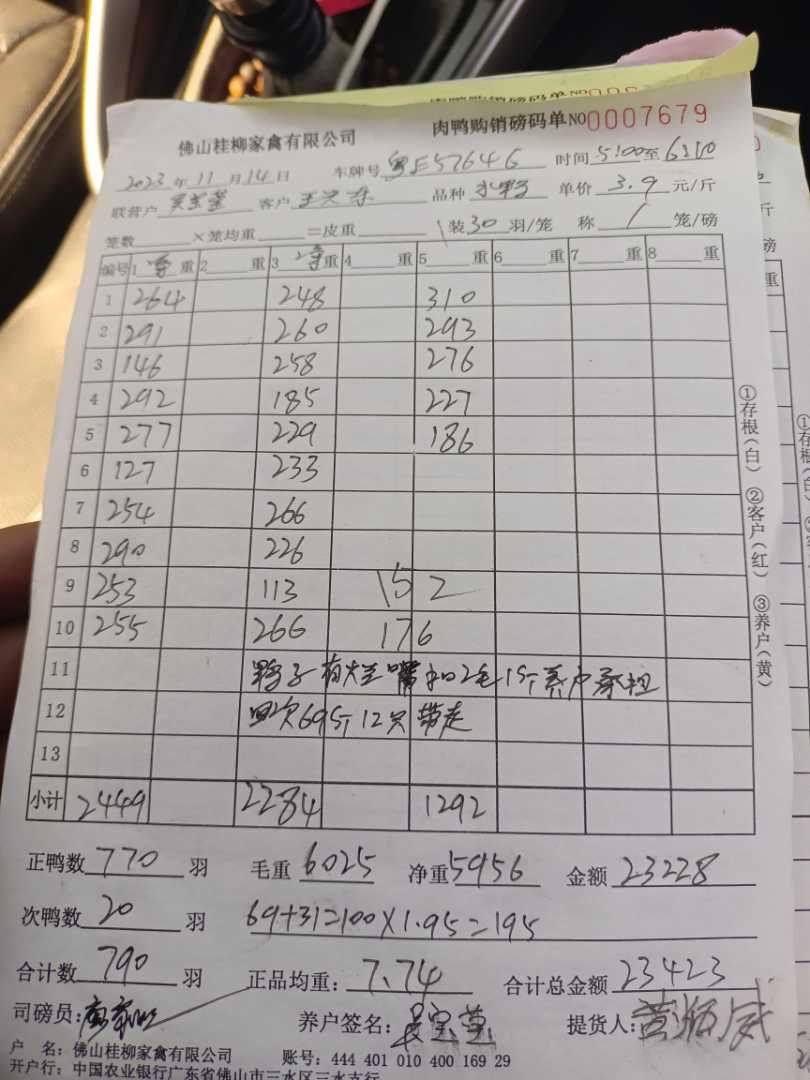 佛山桂柳家禽有限公司 肉鸭购销磅码单NO0007679
2023年11月14日 车牌号粤E57646 时间5:00至6:10
联营户 客户 品种水鸭 单价3.9元/斤
笼数 ×笼均重 =皮重 装30羽/笼 称1笼/磅
编号 1 重 2 重 3 重 4 重 5 重 6 重 7 重 8 重
1 264 248 310
2 291 260 293
3 146 258 276
4 292 185 227
5 277 229 186
6 127 233
7 254 266
8 290 226
9 253 113 152
10 255 266 176
11 鸭子有大 嘴扣2毛1斤养户承担
12 次69斤12只带走
13
小计 2449 2284 1292
正鸭数770羽 毛重6025 净重5956 金额23228
次鸭数20羽 69+31=100×1.95=195
合计数790羽 正品均重:7.74 合计总金额23423
司磅员: 养户签名: 提货人:
户 名:佛山桂柳家禽有限公司 账号:444 401 010 400 169 29
开户行:中国农业银行广东省佛山市三水区三水支行
①存根(白) ②客户(红) ③养户(黄)